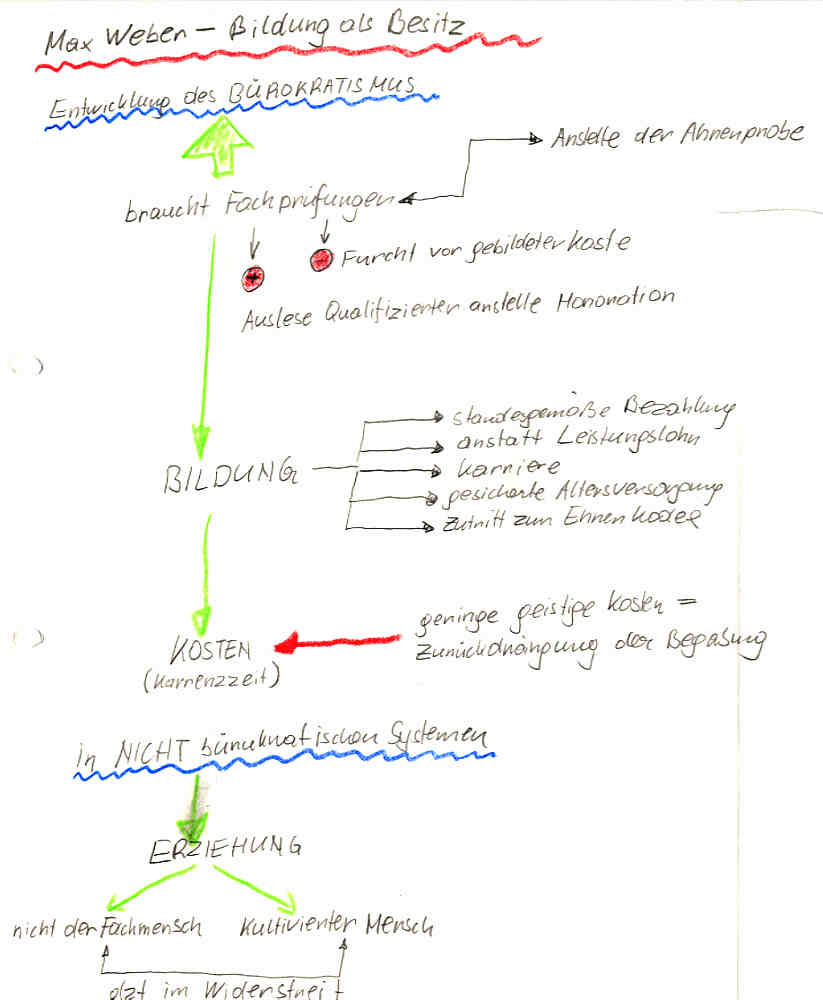 Max Weber – Bildung als Besitz
Entwicklung des BÜROKRATISMUS
Anstelle der Ahnenprobe
braucht Fachprüfungen
Furcht vor gebildeter Kaste
+
Auslese Qualifizierter anstelle Honoration
standesgemäße Bezahlung
anstatt Leistungslohn
BILDUNG
Karriere
gesicherte Altersversorgung
Zutritt zum Ehrenkodex
geringe geistige Kosten =
KOSTEN
Zurückdrängung der Begabung
(Karrenzzeit)
in NICHT bürokratischen Systemen
ERZIEHUNG
nicht der Fachmensch
Kultivierter Mensch
dzt im Widerstreit